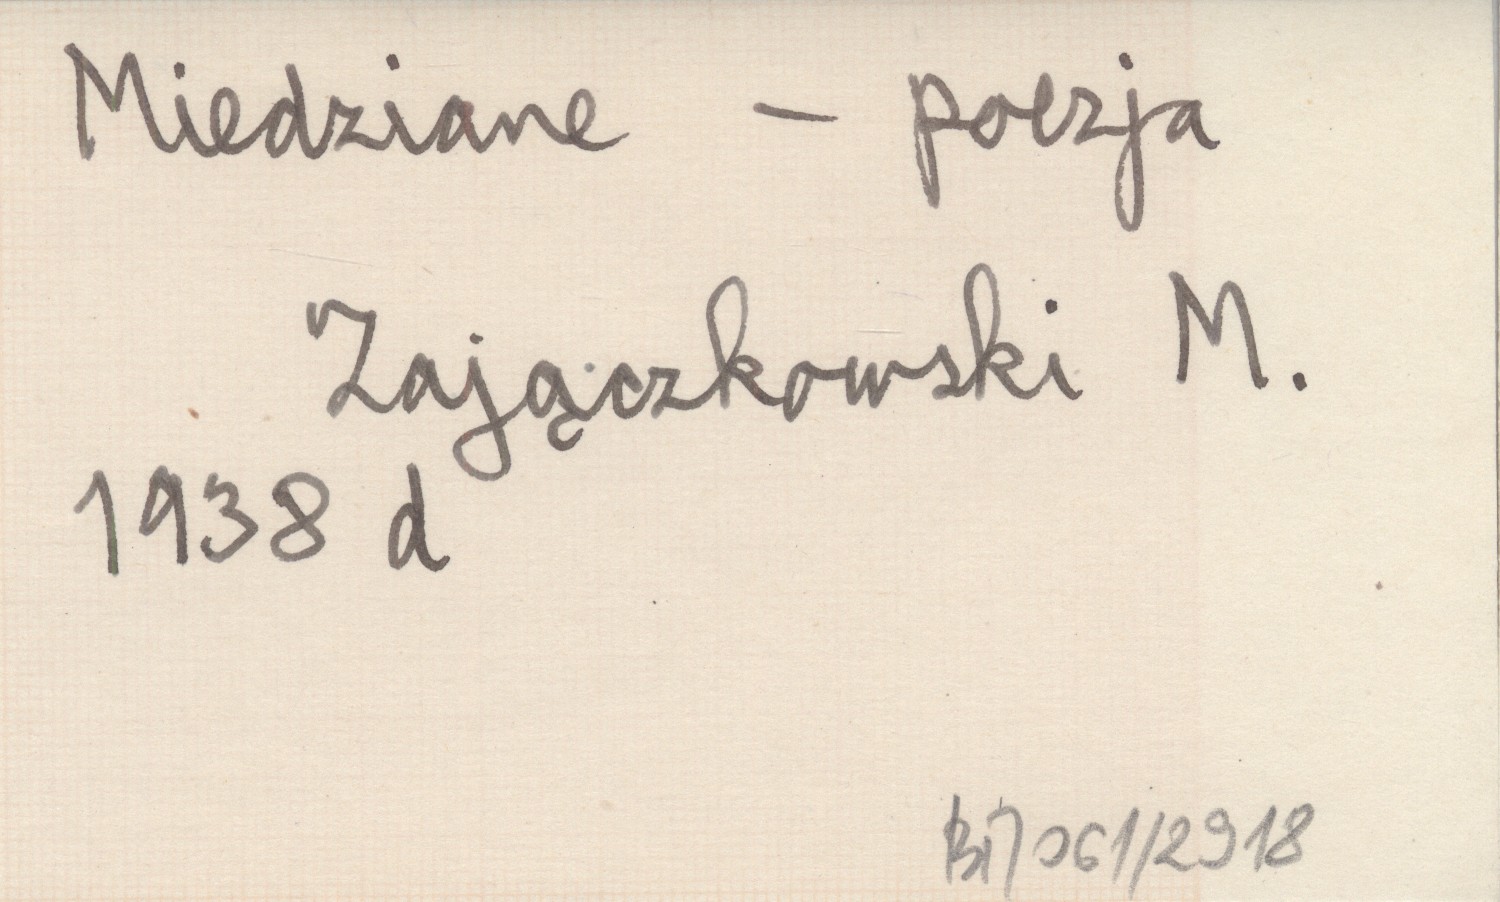 Miedziane - poezja
Zajączkowski M.
1938 d
061/2918